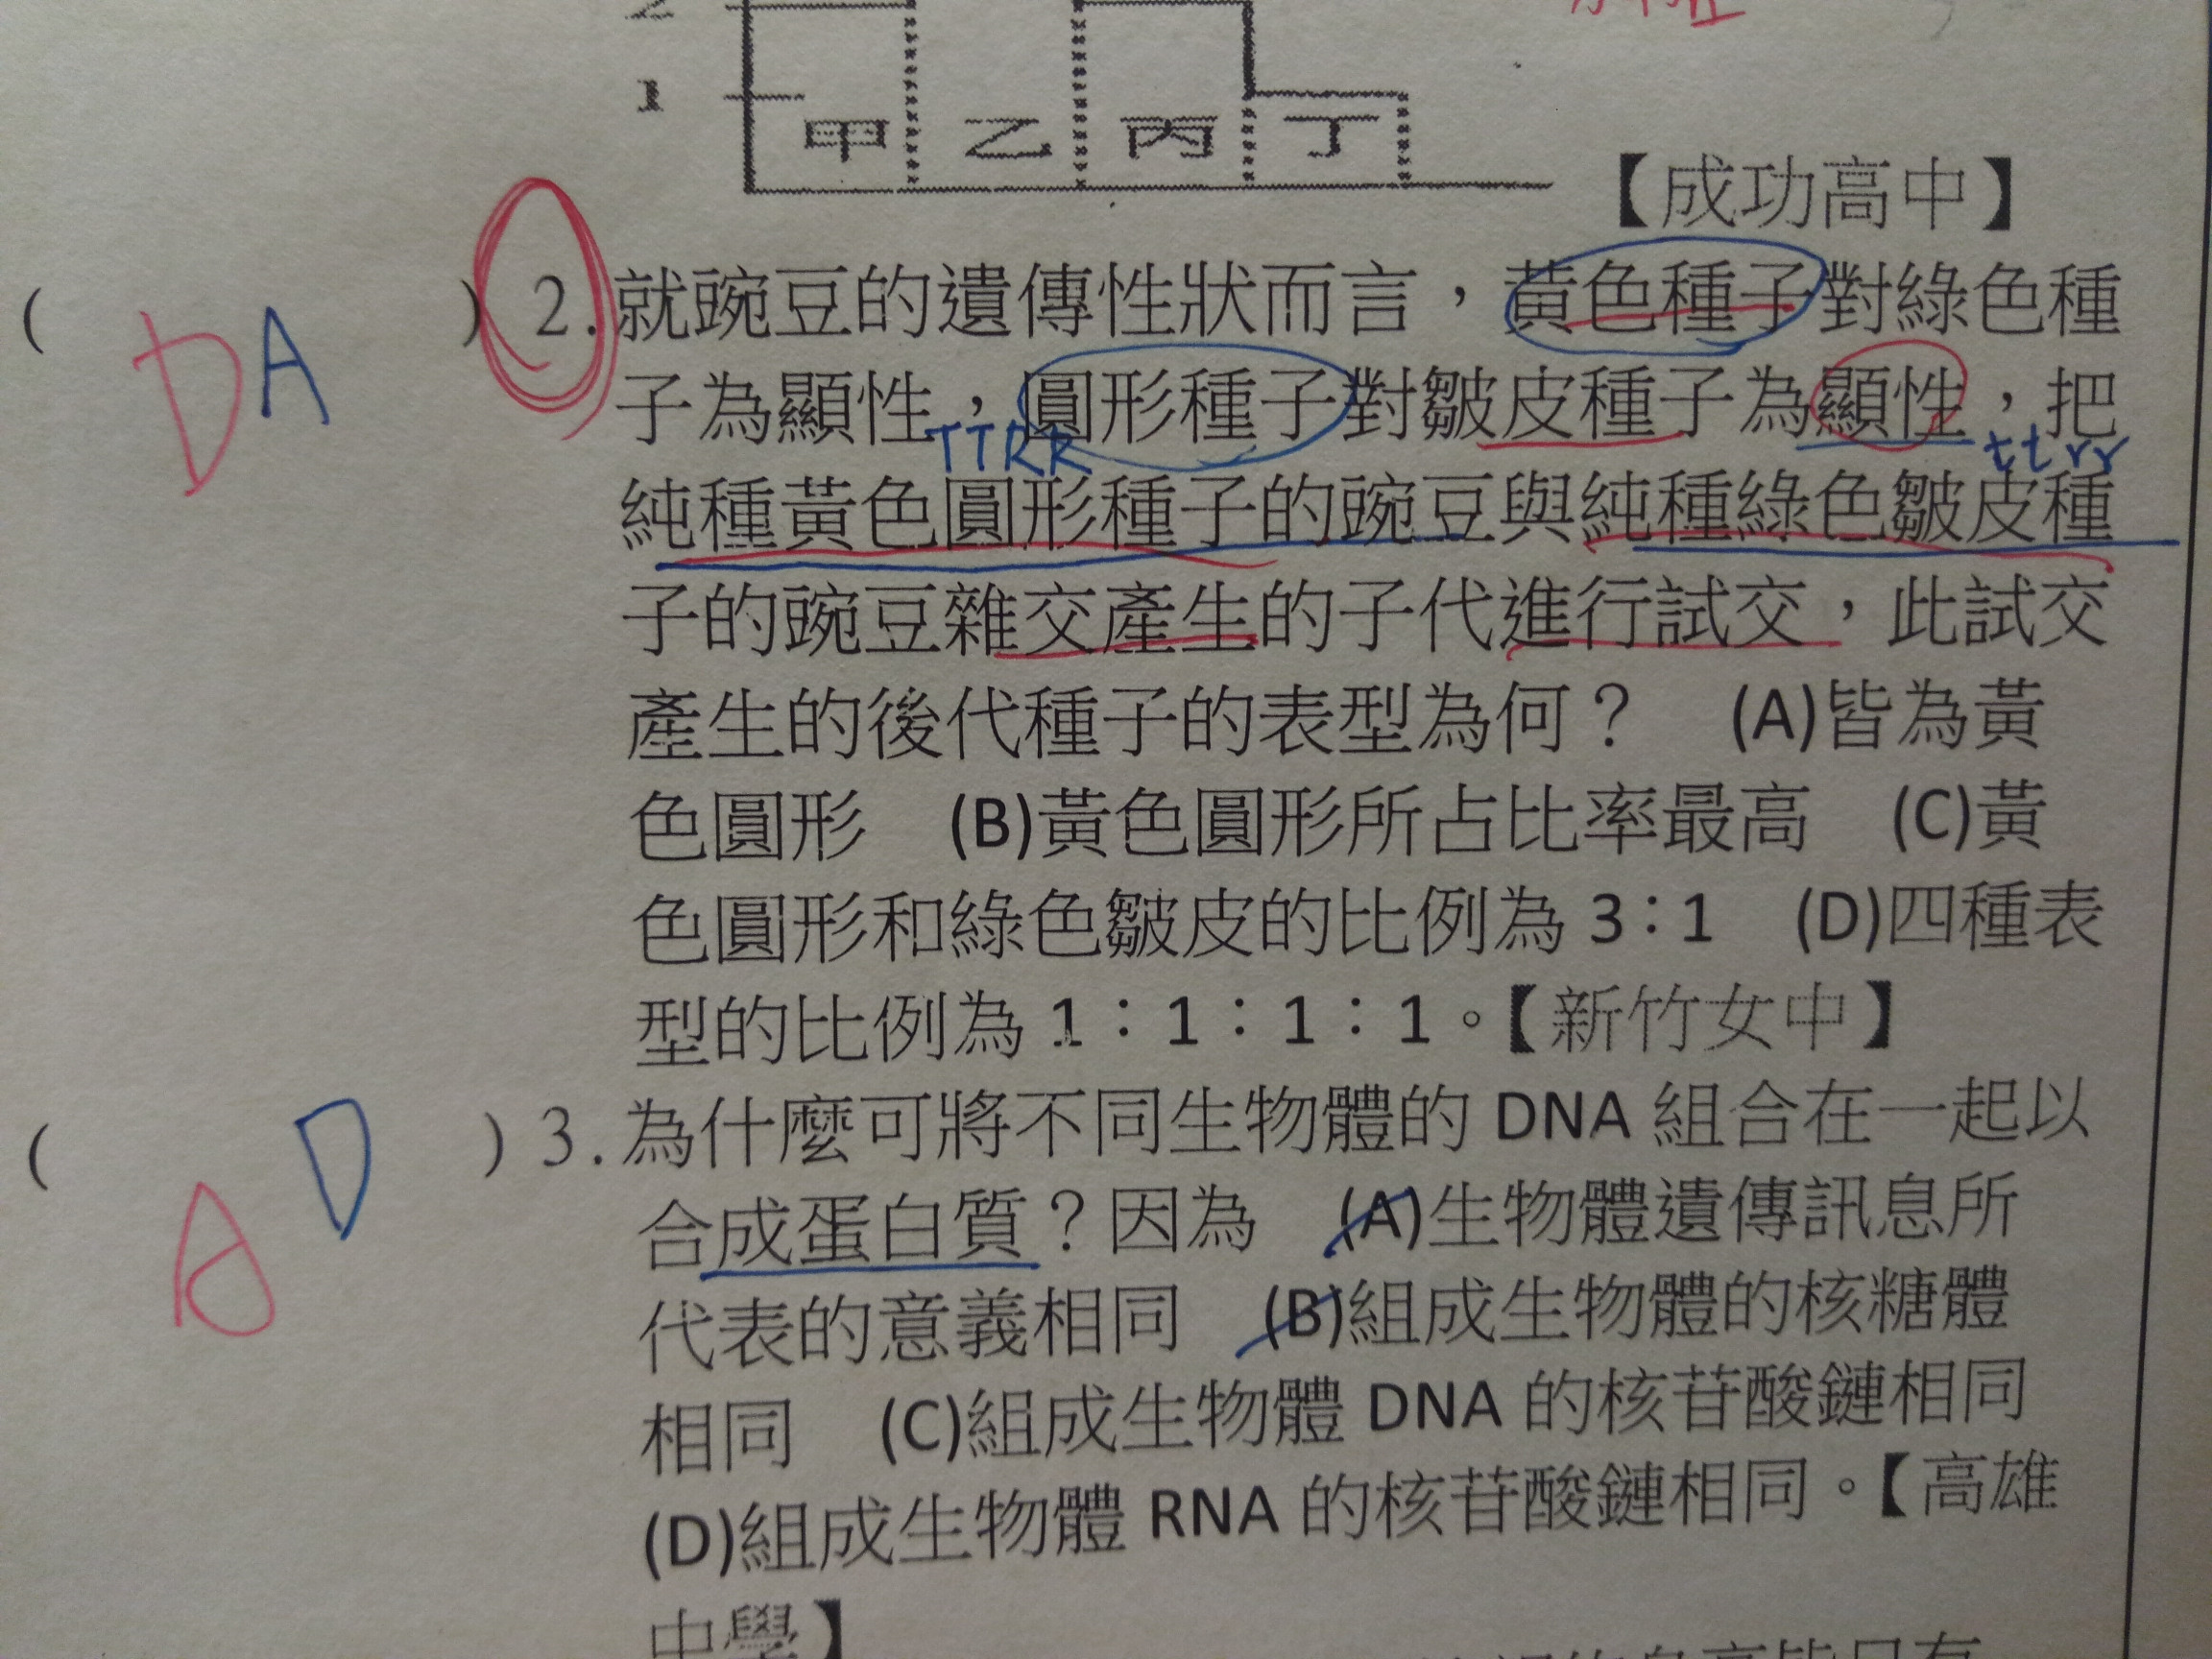 2
1
甲 乙 丙 丁
【成功高中】
( DA ) 2.就豌豆的遺傳性狀而言，黃色種子對綠色種
子為顯性，圓形種子對皺皮種子為顯性，把
TTRR ttrr
純種黃色圓形種子的豌豆與純種綠色皺皮種
子的豌豆雜交產生的子代進行試交，此試交
產生的後代種子的表型為何？ (A)皆為黃
色圓形 (B)黃色圓形所占比率最高 (C)黃
色圓形和綠色皺皮的比例為 3：1 (D)四種表
型的比例為 1：1：1：1。【新竹女中】
( D ) 3.為什麼可將不同生物體的 DNA 組合在一起以
A
合成蛋白質？因為 (A)生物體遺傳訊息所
代表的意義相同 (B)組成生物體的核糖體
相同 (C)組成生物體 DNA 的核苷酸鏈相同
(D)組成生物體 RNA 的核苷酸鏈相同。【高雄
中學】